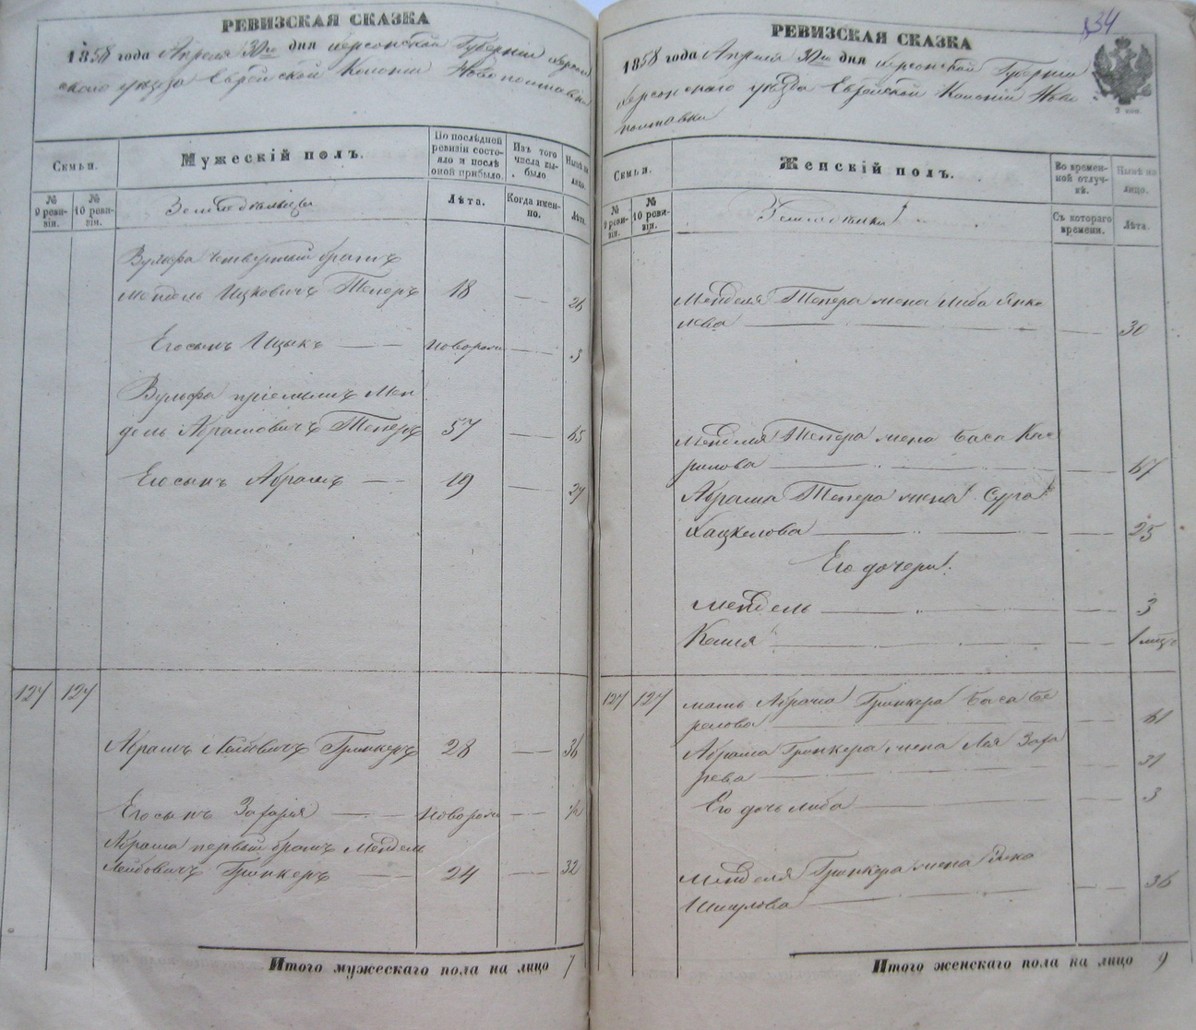 РЕВИЗСКАЯ СКАЗКА
1858 года Апреля 30го дня Херсонской Губернии Херсон
скаго уѣзда Еврейской Колоніи Новополтавки
Семьи.
Мужескій полъ.
По послѣдней ревизіи состояло и послѣ оной прибыло.
Изъ того числа выбыло
Нынѣ на лицо.
№ 9 ревизіи.
№ 10 ревизіи.
Земледѣльцы
Лѣта.
Когда именно.
Лѣта.
Вульфа четвертый братъ
Мендель Ицковичъ Теперъ 18 — 26
Его сынъ Ицыкъ — новорож — 3
Вульфа пріемышъ Мен
дель Абрамовичъ Теперъ 57 — 65
Его сынъ Абрамъ — 19 — 27
127 127
Абрамъ Лейбовичъ Гринкеръ 28 — 36
Его сынъ Захарія — новорож —
Абрама первый братъ Мендель
Лейбовичъ Гринкеръ — 24 — 32
Итого мужескаго пола на лицо 7
834
РЕВИЗСКАЯ СКАЗКА
1858 года Апреля 30го дня Херсонской Губерніи
Херсонскаго уѣзда Еврейской Колоніи Ново
полтавки
Семьи.
Женскій полъ.
Во временной отлучкѣ.
Нынѣ на лицо.
№ 9 ревизіи.
№ 10 ревизіи.
Земледѣльцы
Съ котораго времени.
Лѣта.
Менделя Тепера жена Либа Янке
лева — 30
Менделя Тепера жена Бася
— 67
Абрама Тепера жена Сура
Хацкелова — 25
Его дочери
Мендель — 3
— 1 мѣц
127 127 мать Абрама Гринкера Бася Бе
релова — 61
Абрама Гринкера жена Лея Заха
рева — 31
Его дочь Либа — 3
Менделя Гринкера жена
Шмулова — 36
Итого женскаго пола на лицо 9